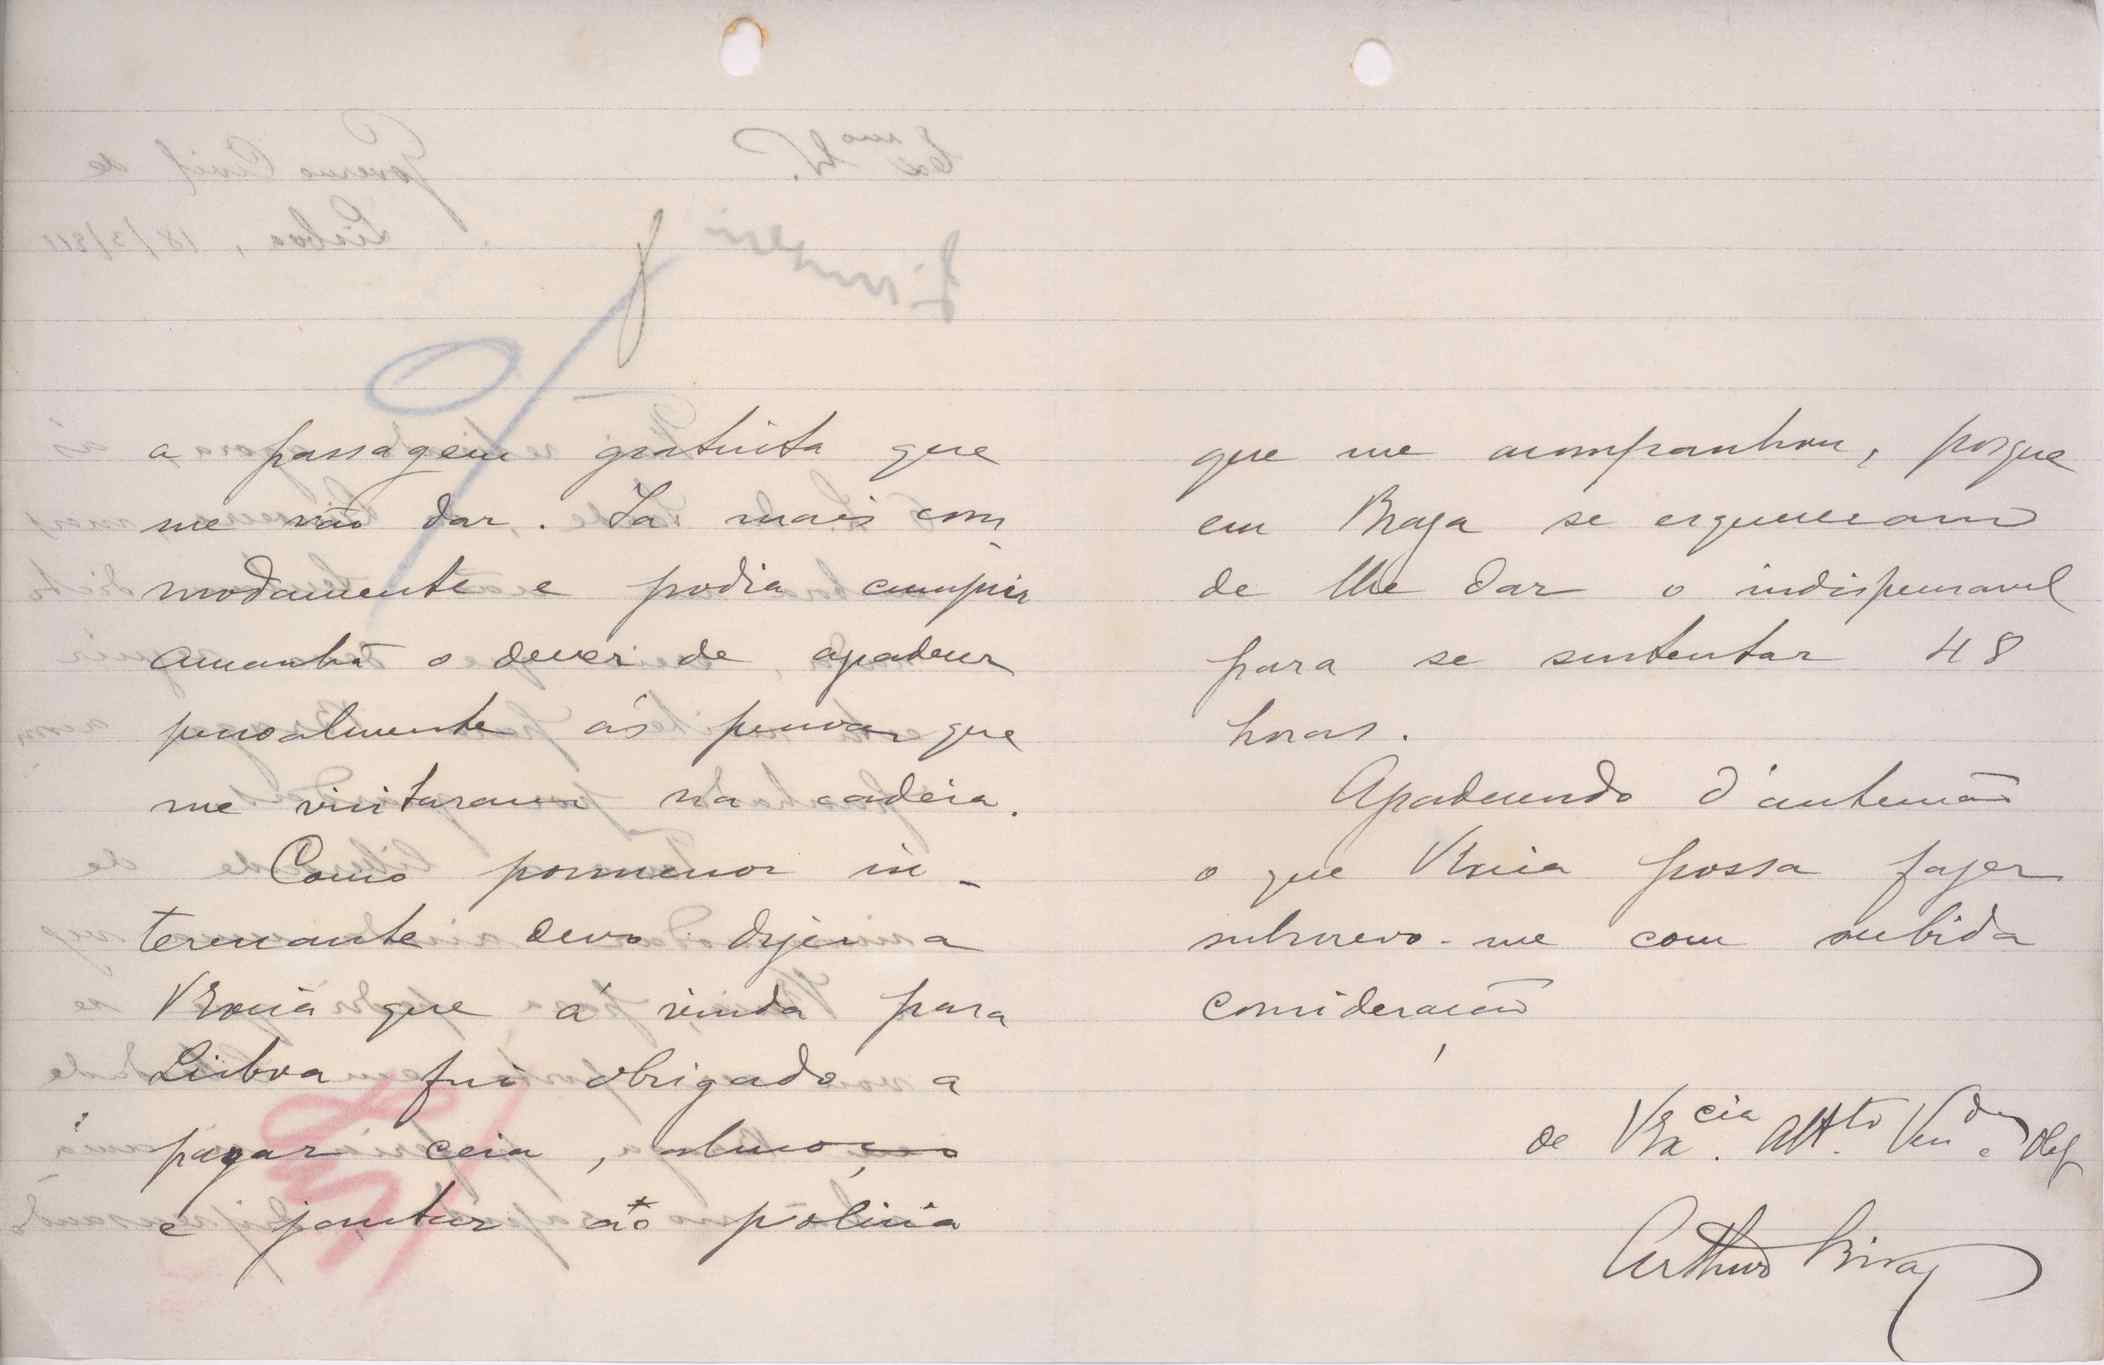 a passagem gratuita que
me vão dar. Ia mais com-
modamente e podia cumprir
amanhã o dever de, agradecer
pessoalmente ás pessoas que
me visitaram na cadeia.
Como pormenor in-
teressante devo dizer a
VExcia que á vinda para
Lisboa fui obrigado a
pagar ceia, almoço
e jantar ao policia
que me acompanhou, porque
em Braga se esqueceram
de lhe dar o indispensavel
para se sustentar 48
horas.
Agradecendo d'antemão
o que VExcia possa fazer
subscrevo-me com subida
consideração
de VExcia. Att.to Ven.dor e Obg
Arthur